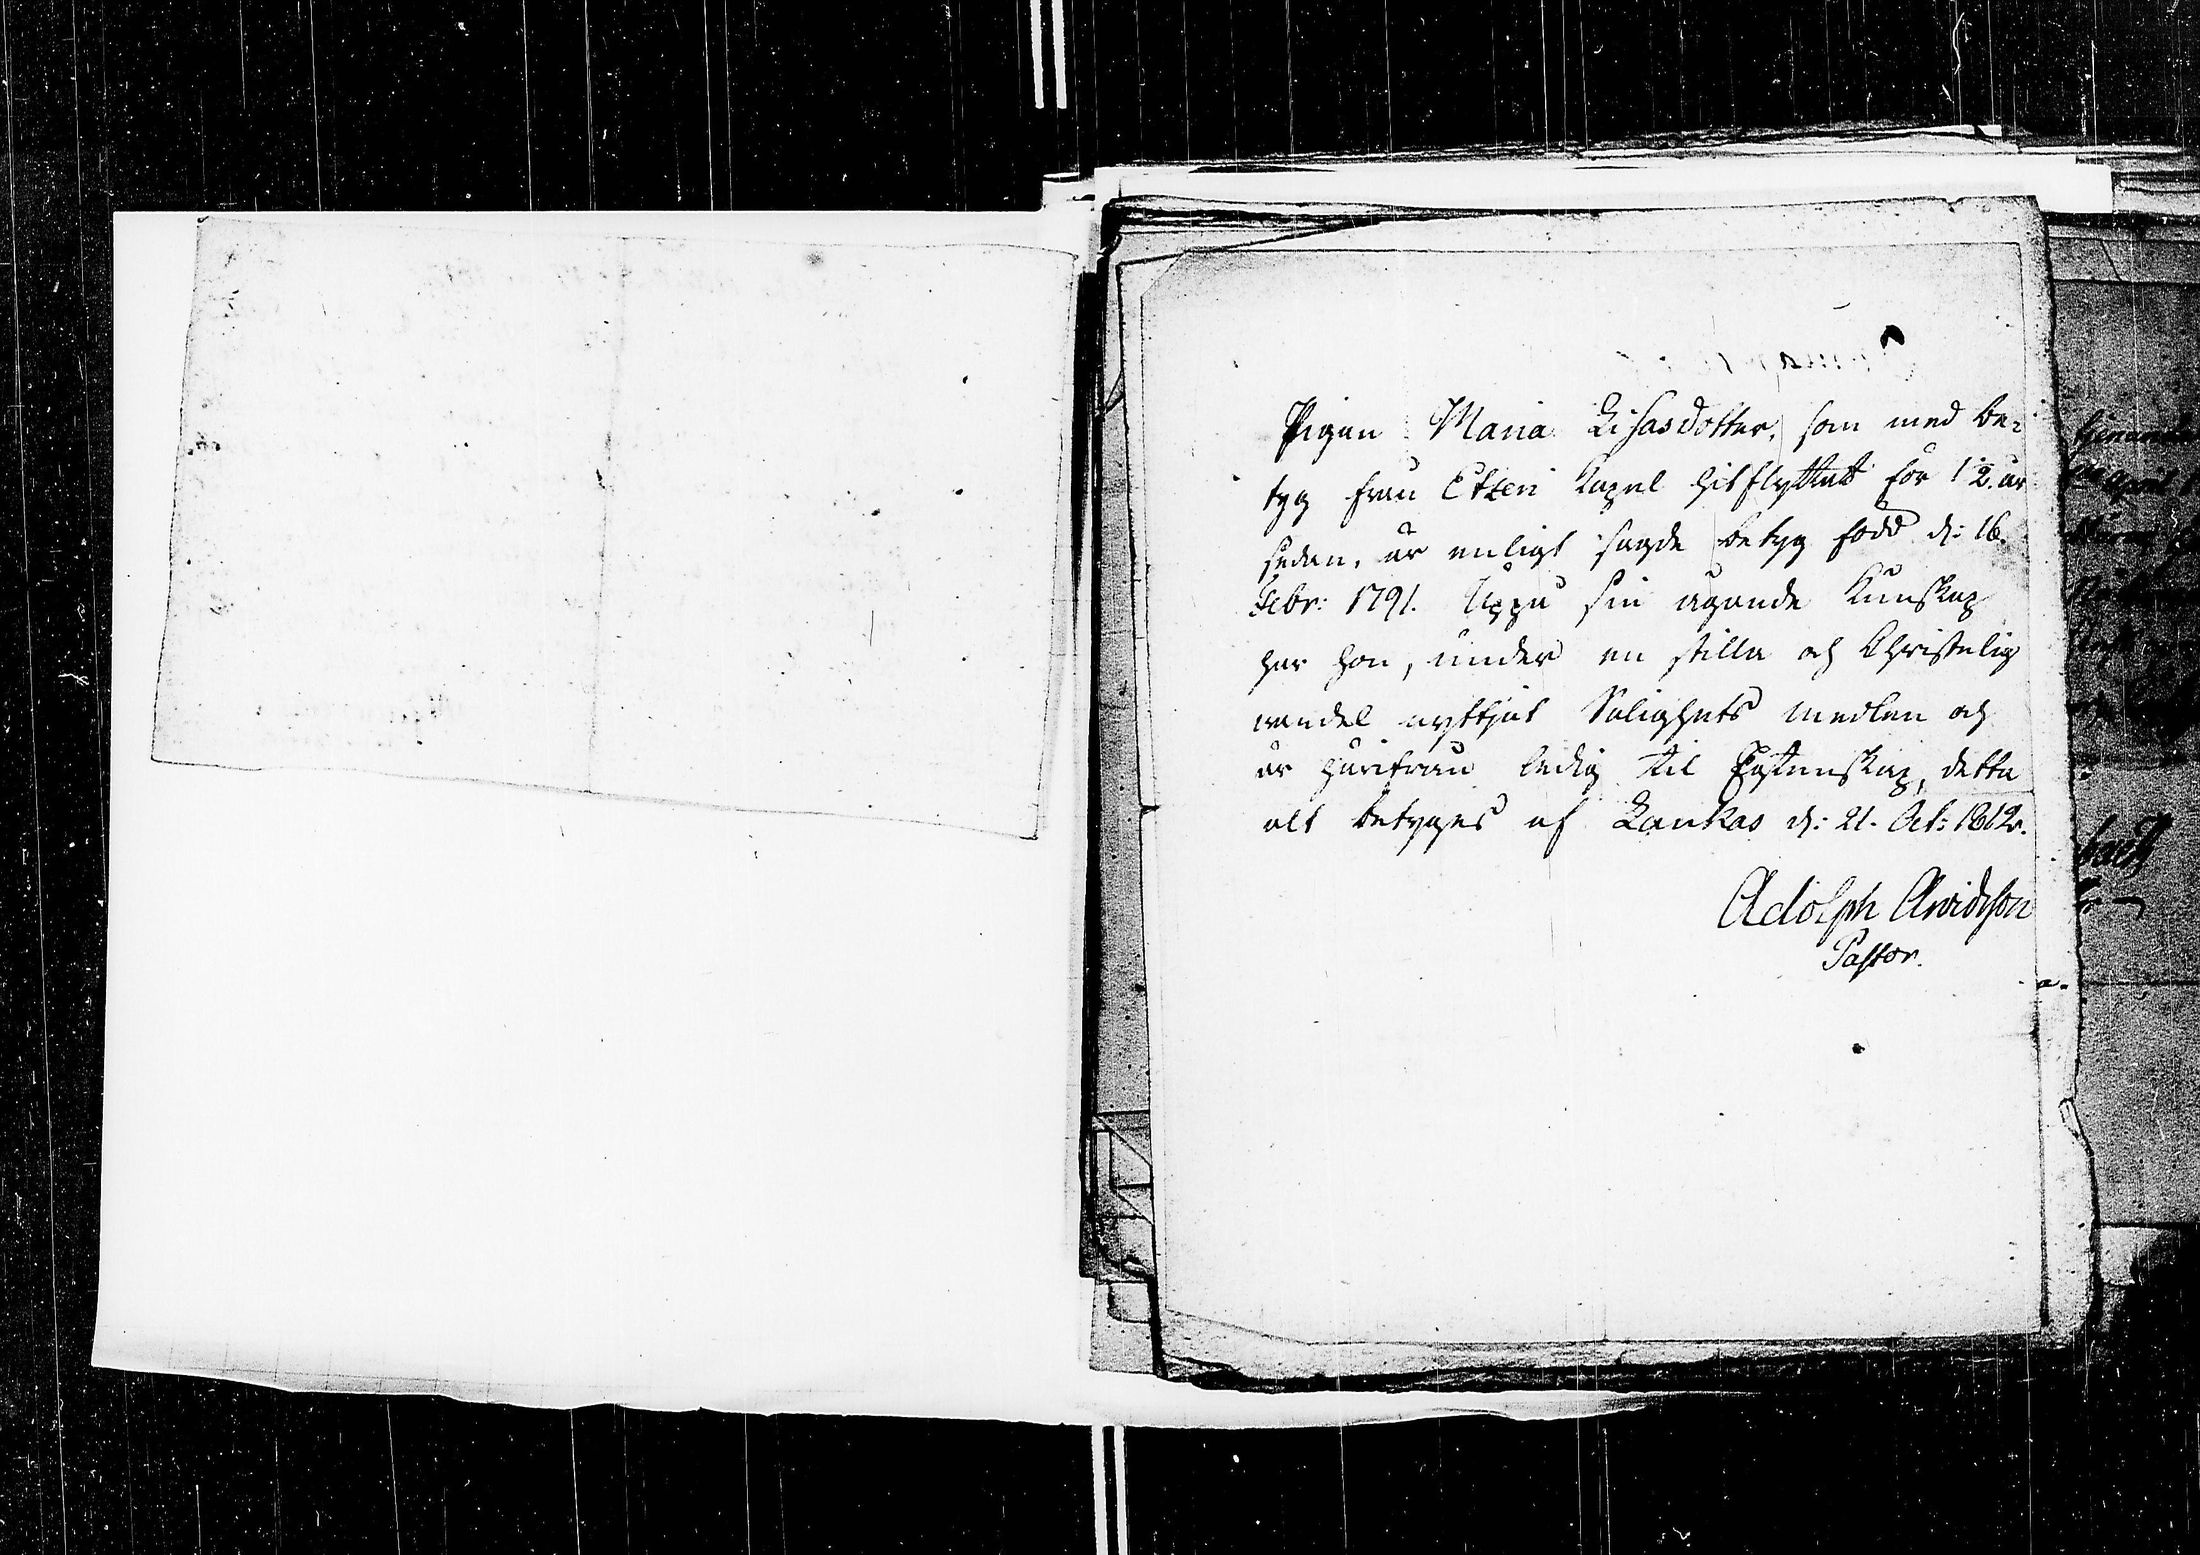 Pigan Maria Lisasdotter, som med be-
tyg från Etseri Capel hitflyttat för 1 2. år
sedan, är enligt sagde betyg född d: 16.
Febr: 1791. Uppå sin ägande Kunskap
har hon, under en stilla och Christelig
vandel nyttjat Salighets medlen och
är härifrån ledig til Ecktenskap, detta
alt betyges af Laukas d: 21. Oct: 1812.
Adolph Arvidsson
Pastor.